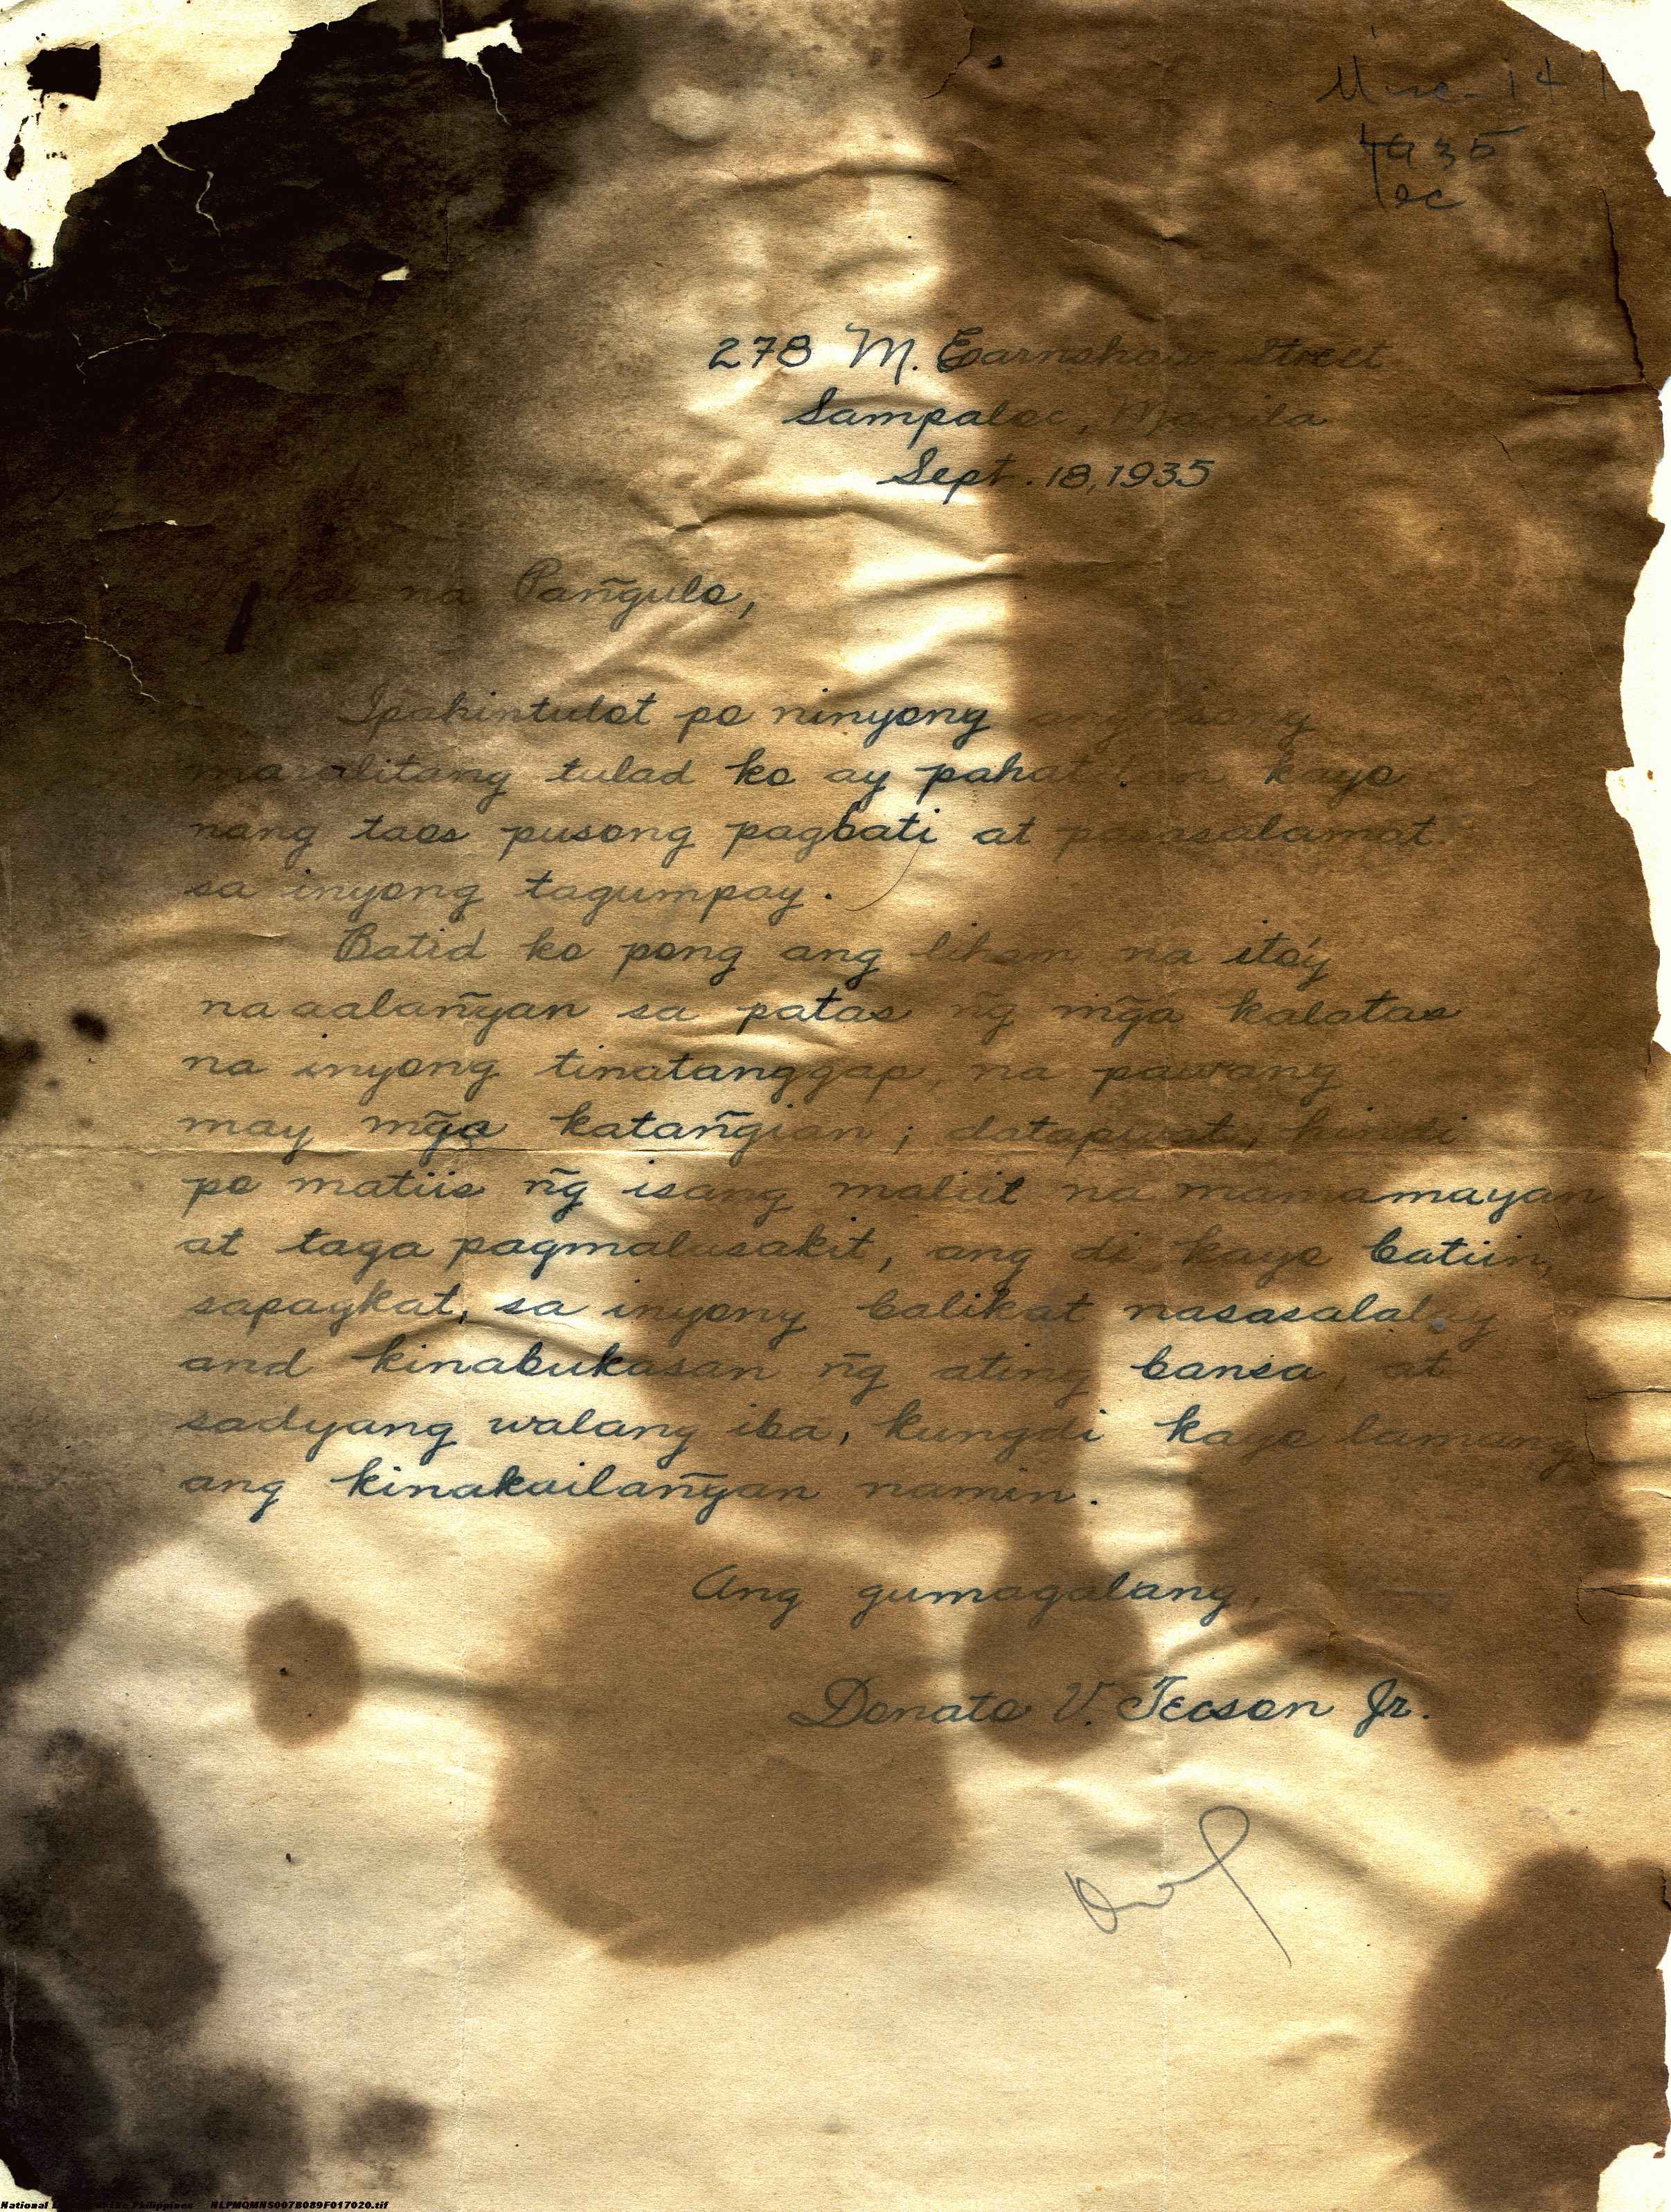 1935
278 M. Earnshaw Street
Sampaloc, Manila
Sept. 18, 1935
na Pañgulo,
Ipahintulot po ninyong ang isang
maralitang tulad ko ay pahat kayo
nang taos pusong pagbati at pasasalamat
sa inyong tagumpay.
Batid ko pong ang liham na ito'y
naaalañgan sa patas ng̃ mg̃a kalatas
na inyong tinatanggap, na pawang
may mg̃a katañgian; datapwat, hindi
po matiis ng̃ isang maliit na mamamayan
at taga pagmalasakit, ang di kayo batiin,
sapagkat, sa inyong balikat nasasalalay
and kinabukasan ng̃ ating bansa, at
sadyang walang iba, kungdi kayo lamang
ang kinakailañgan namin.
Ang gumagalang,
Donato V. Tecson Jr.
National Library of the Philippines NLPMQMNS007B089F017020.tif